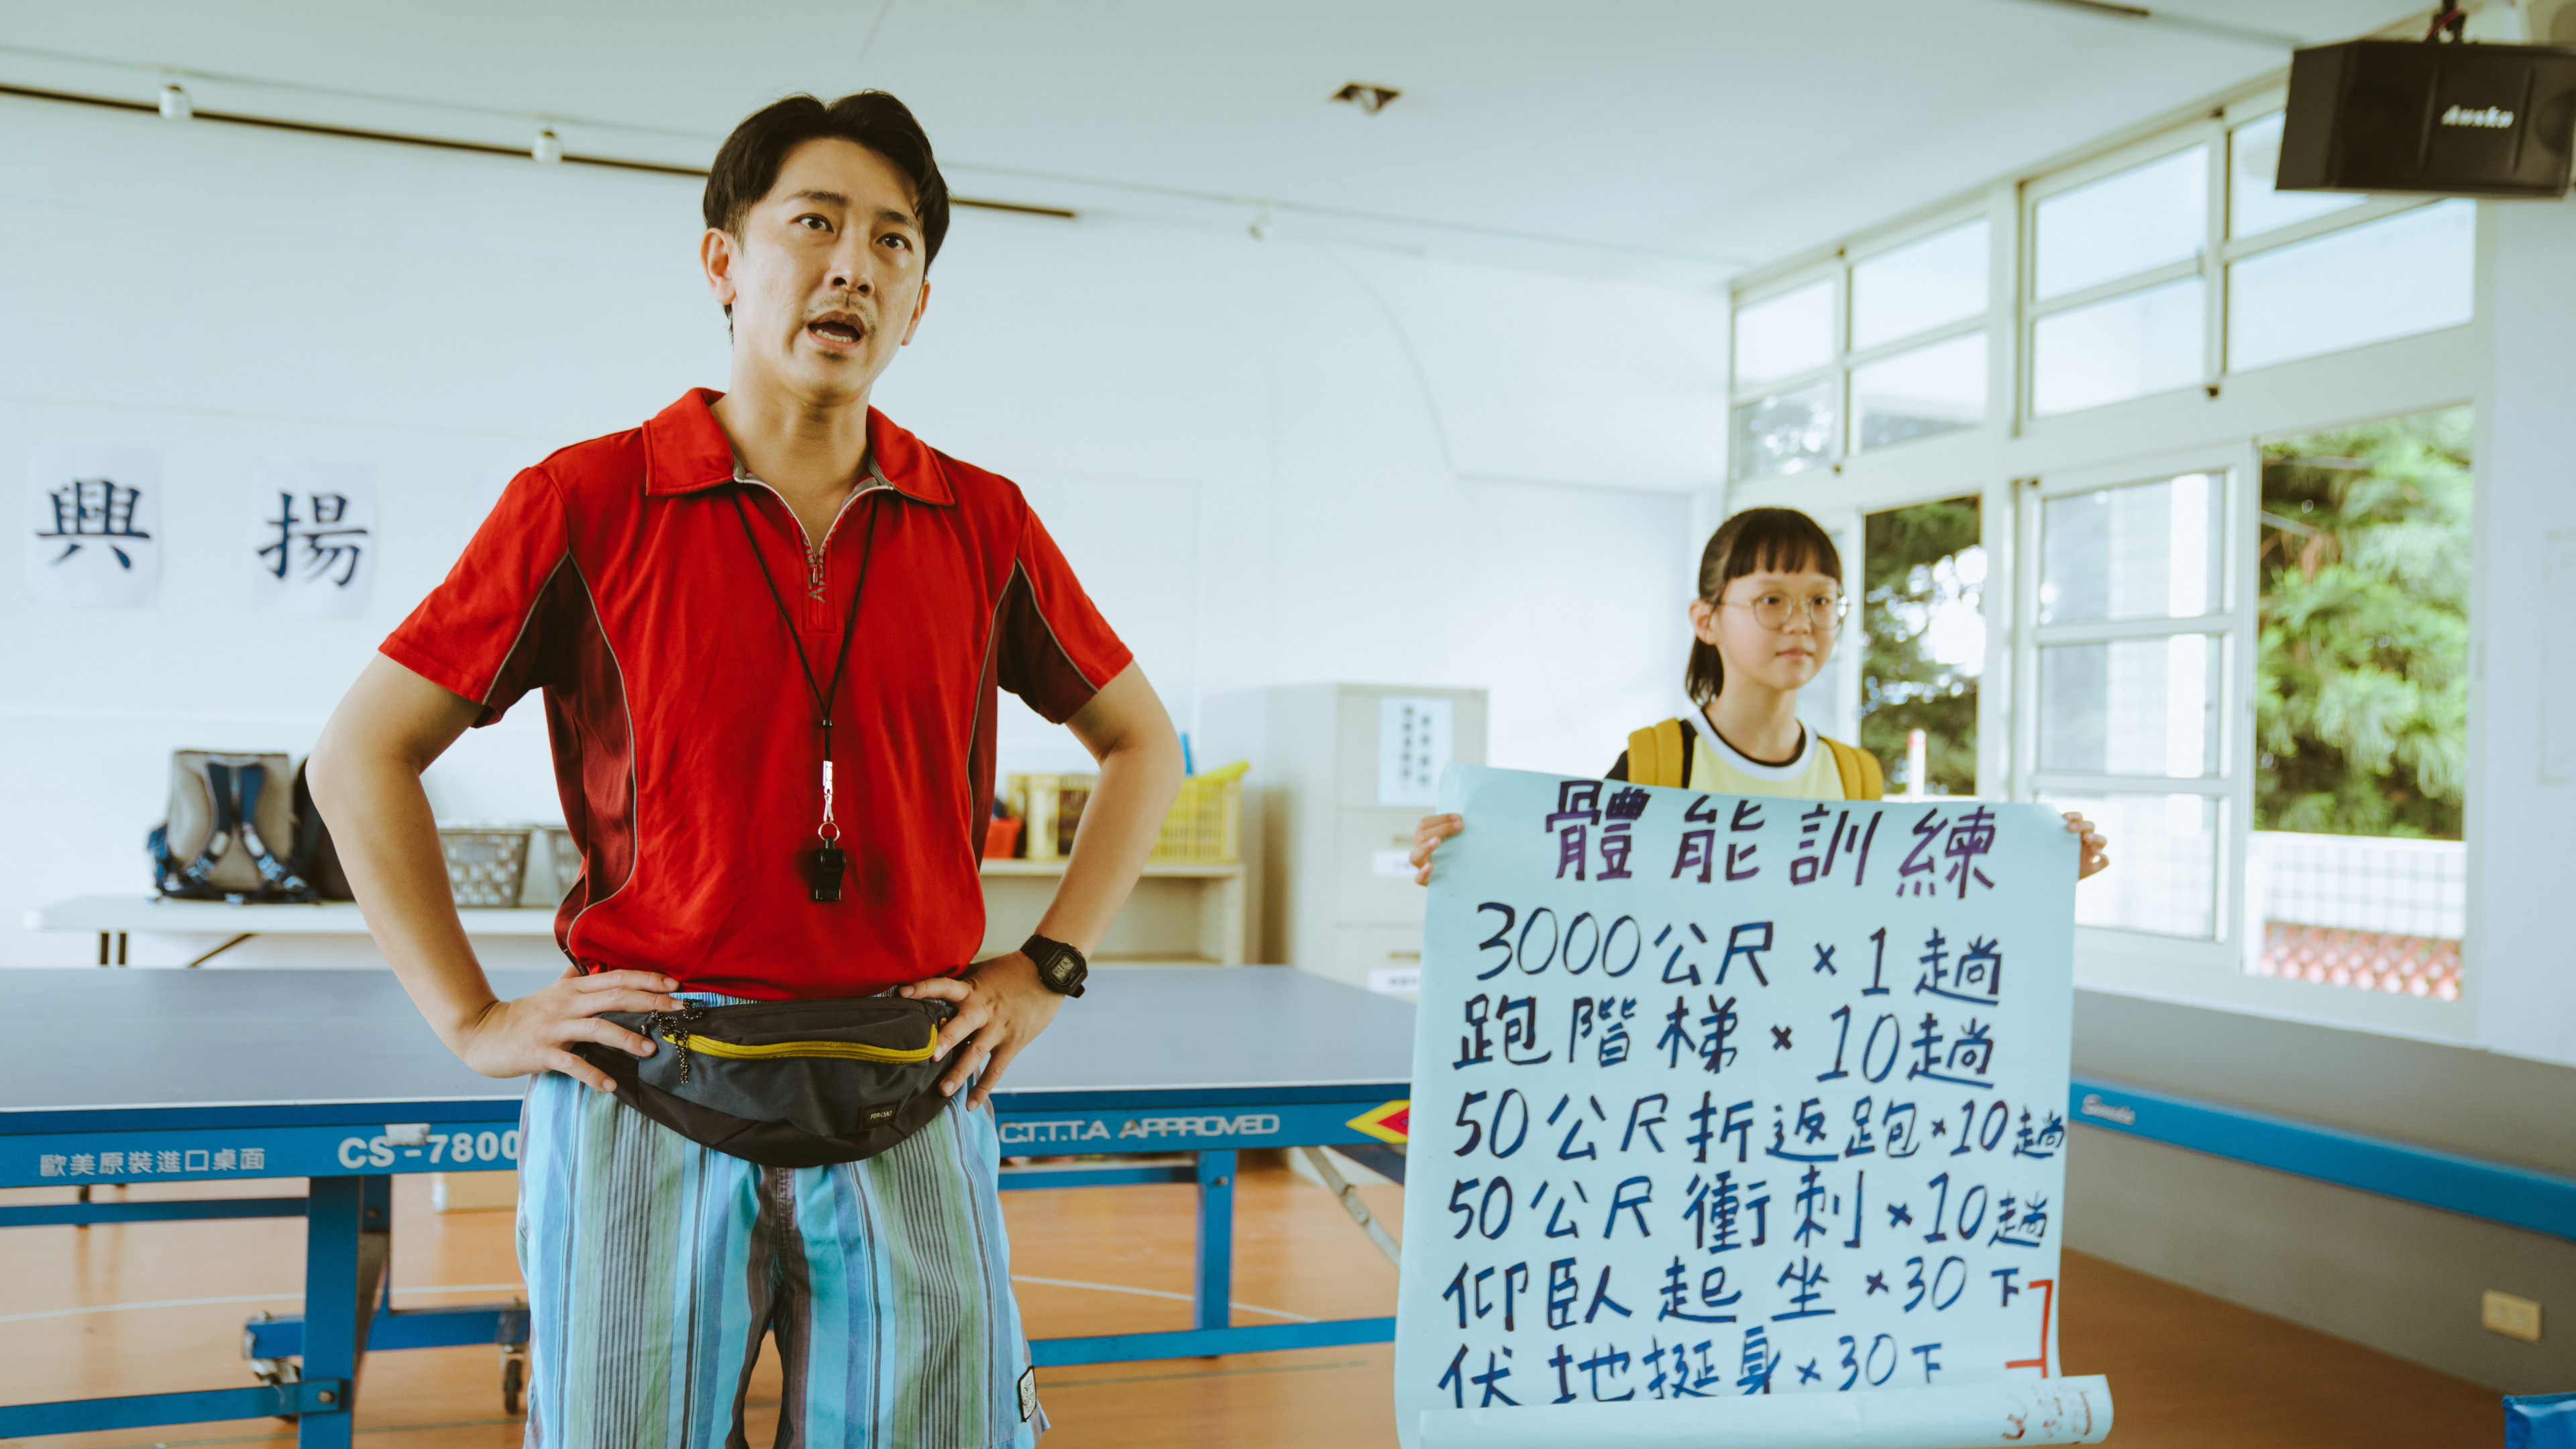 興 揚
Ausku
體能訓練
3000公尺×1趟
跑階梯×10趟
50公尺折返跑×10趟
50公尺衝刺×10趟
仰臥起坐×30下
伏地挺身×30下
歐美原裝進口桌面
CS-7800
C.T.T.T.A APPROVED